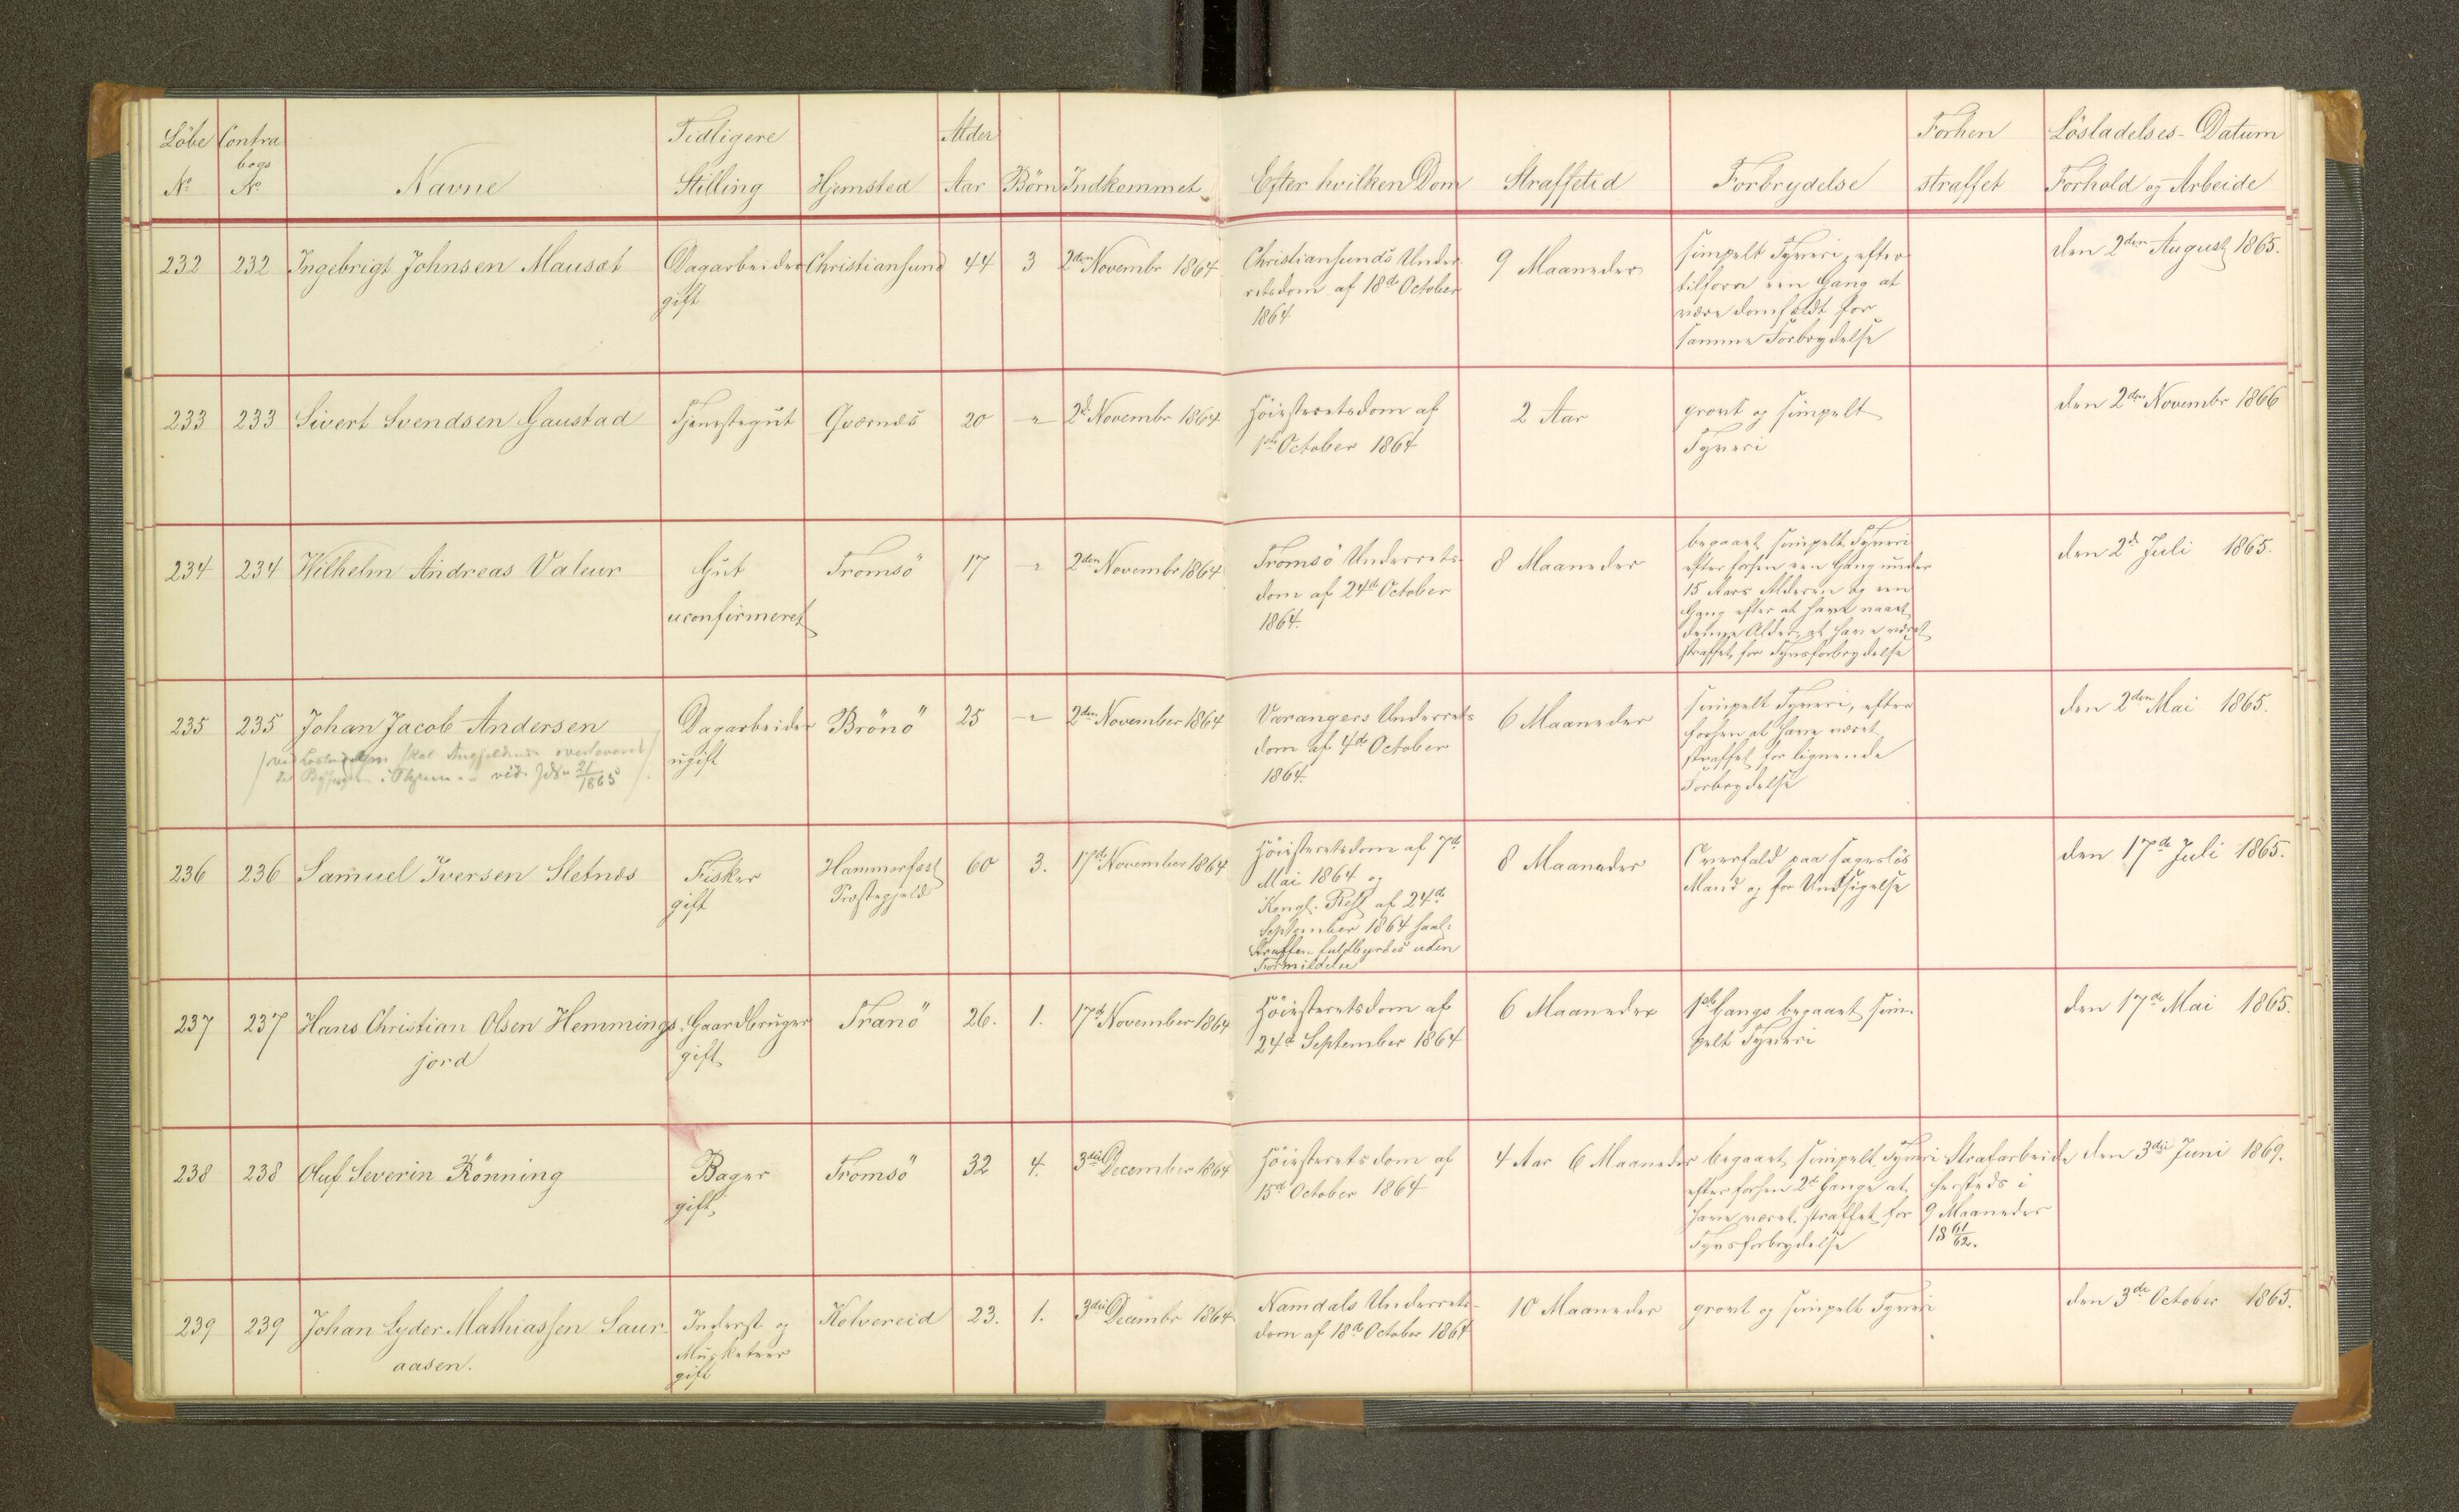 Löbe Contra Tidligere Alder Forhen Lösladelses-Datum
bogs
No No Navne Stilling Hjemsted Aar Börn Indkommet Efter hvilken Dom Straffetid Forbrydelse straffet Forhold og Arbeide
232 232 Ingebrigt Johnsen Mausæt Dagarbeider Christiansund 44 3 2den Novembr 1864 Christiansunds Under 9 Maaneder simpelt Tyveri, efter den 2den August 1865.
gift retsdom af 18de October tilforn een Gang at
1864 være domfældt for
samme Forbrydelse
233 233 Sivert Svendsen Gaustad Tjenestegut Qværnæs 20 " 2d Novembr 1864 Höiesteretsdom af 2 Aar grovt og simpelt den 2den Novembr 1866
1ste October 1864 Tyveri
234 234 Wilhelm Andreas Valeur Gut Tromsö 17 " 2den Novembr 1864 Tromsö Underrets- 8 Maaneder begaaet simpelt Tyveri den 2d Juli 1865.
uconfirmeret dom af 24de October efter forhen een Gang under
1864. 15 Aars Alderen og een
Gang efter at have naaet
denne Alder, at have været
straffet for Tyvsforbrydelse
235 235 Johan Jacob Andersen Dagarbeider Brönö 25 " 2den November 1864 Varangers Underrets- 6 Maaneder simpelt Tyveri, efter den 2den Mai 1865.
ved Lösladelsen skal overleveret ugift dom af 4de October forhen at have været
vide 21/1865 1864. straffet for lignende
Forbrydelse
236 236 Samuel Iversen Sletnæs Fisker Hammerfest 60 3. 17de November 1864 Höiesteretsdom af 7de 8 Maaneder Overfald paa sageslös den 17de Juli 1865.
gift Præstegjeld Mai 1864 og Mand og for Undsigelse
Kongl. Resl af 24de
September 1864 
Straffen fuldbyrdes uden
Formildelse
237 237 Hans Christian Olsen Hemmings- Gaardbruger Tranö 26. 1. 17de November 1864 Höiesteretsdom af 6 Maaneder 1ste Gangs begaaet sim- den 17de Mai 1865.
jord gift 24de September 1864 pelt Tyveri
238 238 Oluf Severin Rönning Bager Tromsö 32 4. 3die December 1864 Höiesterets dom af 4 Aar 6 Maaneder begaaet simpelt Tyveri Strafarbeide den 3die Juni 1869.
gift, 15de October 1864 efter forhen 2de Gange at hersteds i
have været straffet for 9 Maaneder
Tyvsforbrydelse 18 61/62.
239 239 Johan Lyder Mathiassen Saur- Inderst og Kolvereid 23. 1. 3die Decembr 1864 Namdals Underrets- 10 Maaneder grovt og simpelt Tyveri den 3die October 1865.
aasen. Musketeer dom af 18de October 1864
gift